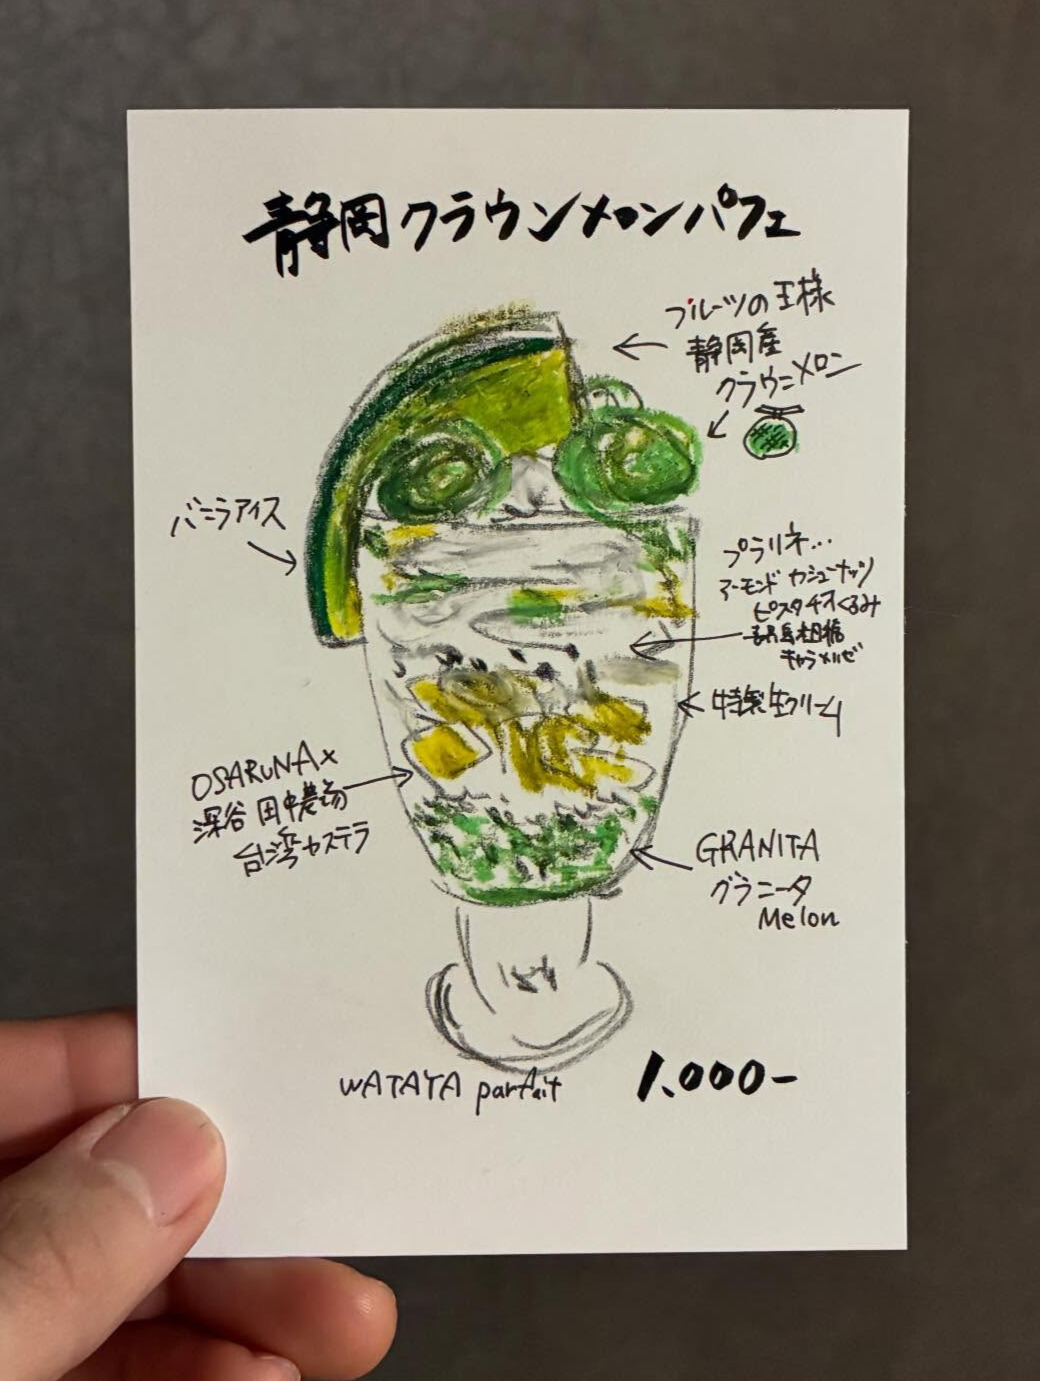 静岡クラウンメロンパフェ
フルーツの王様
静岡産
クラウンメロン
バニラアイス
プラリネ...
アーモンド カシューナッツ
ピスタチオくるみ
キャラメルゼ
特製生クリーム
OSARUNA×
深谷 田中農場
台湾カステラ
GRANITA
グラニータ
Melon
WATAYA parfait
1.000-